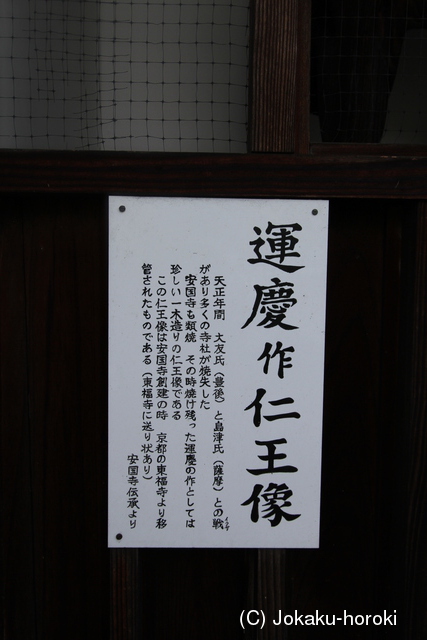 運慶作仁王像
天正年間　大友氏（豊後）と島津氏（薩摩）との戦イクサ
があり多くの寺社が焼失した
安国寺も類焼　その時焼け残った運慶の作としては
珍しい一木造りの仁王像である
この仁王像は安国寺創建の時　京都の東福寺より移
管されたものである（東福寺に送り状あり）
安国寺伝承より
(C) Jokaku-horoki